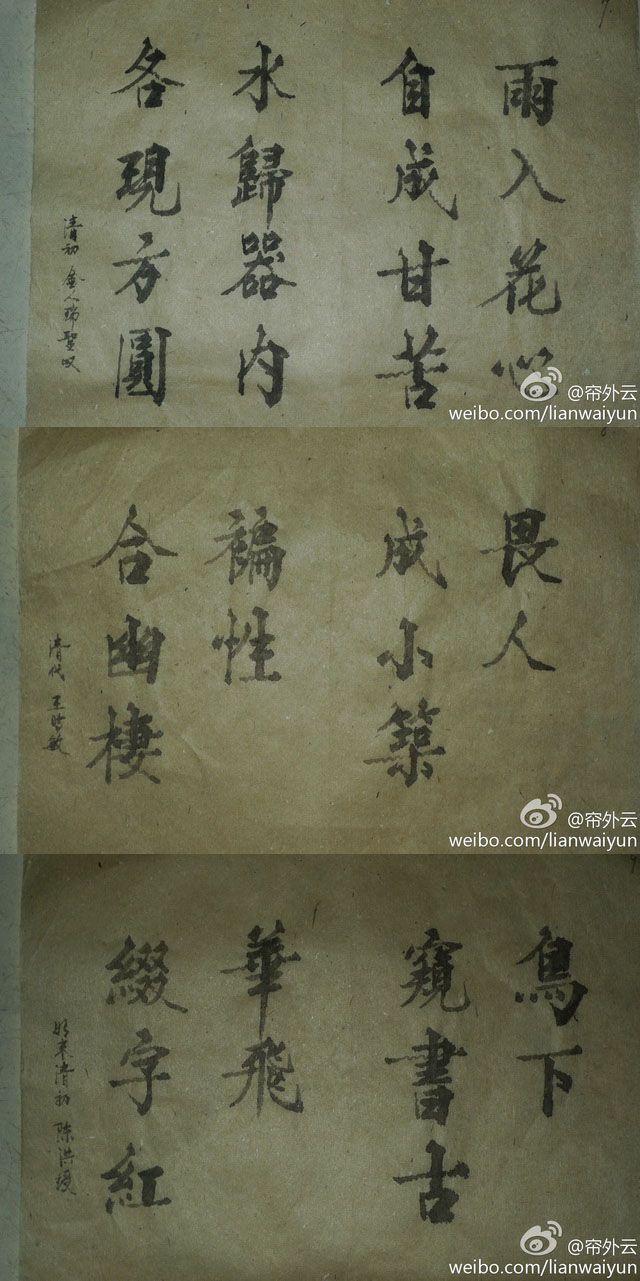 雨入花心
自成甘苦
水歸器内
各現方圓
清初 金人瑞聖叹
@帘外云
weibo.com/lianwaiyun
畏人
成小築
褊性
合幽棲
清代 王时敏
@帘外云
weibo.com/lianwaiyun
鳥下
窺書古
華飛
綴字紅
明末清初 陈洪绶
@帘外云
weibo.com/lianwaiyun